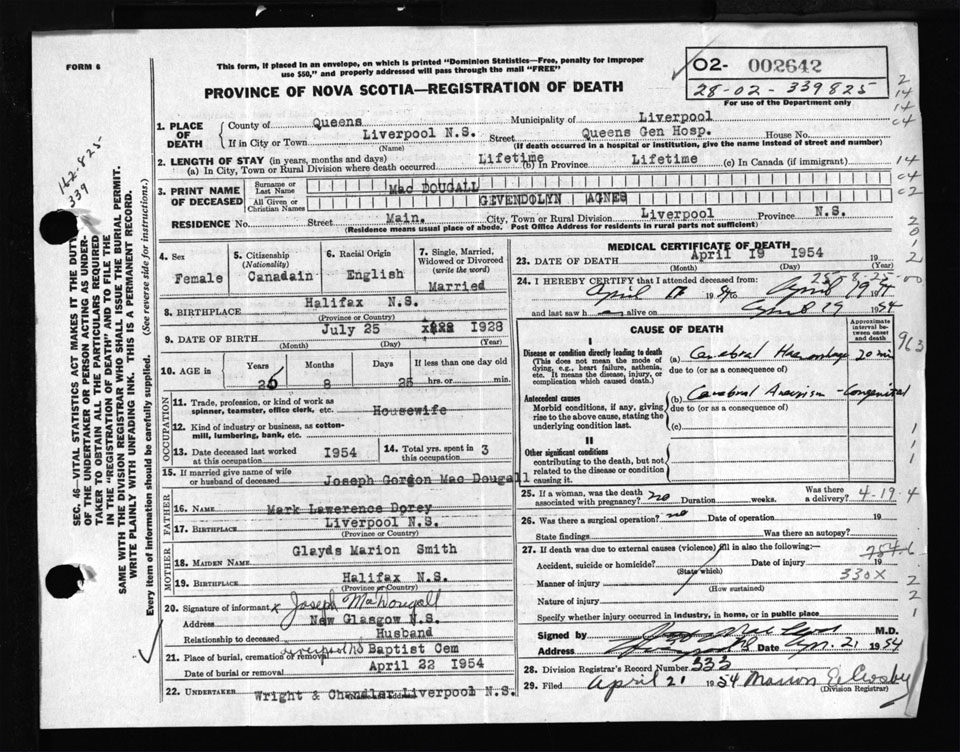 FORM 6
This form, if placed in an envelope, on which is printed "Dominion Statistics—Free, penalty for improper
use $50," and properly addressed will pass through the mail "FREE"
PROVINCE OF NOVA SCOTIA—REGISTRATION OF DEATH
O2- 002642
28-02-339825
For use of the Department only
162-825
339
SEC. 46—VITAL STATISTICS ACT MAKES IT THE DUTY
OF THE UNDERTAKER OR PERSON ACTING AS UNDER-
TAKER TO OBTAIN ALL THE PARTICULARS REQUIRED
IN THE "REGISTRATION OF DEATH" AND TO FILE THE
SAME WITH THE DIVISION REGISTRAR WHO SHALL ISSUE THE BURIAL PERMIT.
WRITE PLAINLY WITH UNFADING INK. THIS IS A PERMANENT RECORD.
Every item of information should be carefully supplied. (See reverse side for instructions.)
1. PLACE OF DEATH County of Queens Municipality of Liverpool
If in City or Town Liverpool N.S. Street Queens Gen Hosp. House No.
(Name) (If death occurred in a hospital or institution, give the name instead of street and number)
2. LENGTH OF STAY (in years, months and days)
(a) In City, Town or Rural Division where death occurred Lifetime (b) In Province Lifetime (c) In Canada (if immigrant)
3. PRINT NAME OF DECEASED Surname or Last Name Mac DOUGALL
All Given or Christian Names GEVENDOLYN AGNES
RESIDENCE No. Street Main. City, Town or Rural Division Liverpool Province N.S.
(Residence means usual place of abode. Post Office Address for residents in rural parts not sufficient)
4. Sex Female
5. Citizenship (Nationality) Canadain
6. Racial Origin English
7. Single, Married, Widowed or Divorced (write the word) Married
8. BIRTHPLACE Halifax N.S.
(Province or Country)
9. DATE OF BIRTH July 25 1928
(Month) (Day) (Year)
10. AGE in Years Months Days If less than one day old
8 25 hrs. or min.
OCCUPATION
11. Trade, profession, or kind of work as
spinner, teamster, office clerk, etc. Housewife
12. Kind of industry or business, as cotton-
mill, lumbering, bank, etc.
13. Date deceased last worked at this occupation 1954
14. Total yrs. spent in this occupation 3
15. If married give name of wife
or husband of deceased Joseph Gordon Mac Dougall
FATHER
16. NAME Mark Lawerence Dorey
17. BIRTHPLACE Liverpool N.S.
(Province or Country)
MOTHER
18. MAIDEN NAME Glayds Marion Smith
19. BIRTHPLACE Halifax N.S.
(Province or Country)
20. Signature of informant x Joseph MacDougall
Address New Glasgow N.S.
Relationship to deceased Husband
21. Place of burial, cremation or removal Liverpool NS Baptist Cem
Date of burial or removal April 22 1954
22. UNDERTAKER Wright & Chandler Liverpool N.S.
MEDICAL CERTIFICATE OF DEATH
23. DATE OF DEATH April 19 1954 19
(Month) (Day) (Year)
24. I HEREBY CERTIFY that I attended deceased from:
April 19 54 to April 19 54
and last saw h alive on 19 1954
CAUSE OF DEATH
Approximate interval between onset and death
I
Disease or condition directly leading to death (a) Cerebral Haemorrhage 20 min
(This does not mean the mode of
dying, e.g., heart failure, asthenia,
etc. It means the disease, injury, or
complication which caused death.)
due to (or as a consequence of)
Antecedent causes (b) Cerebral Aneurism - Congenital
Morbid conditions, if any, giving
rise to the above cause, stating the
underlying condition last.
due to (or as a consequence of)
(c)
II
Other significant conditions
contributing to the death, but not
related to the disease or condition
causing it.
25. If a woman, was the death associated with pregnancy? no Duration weeks. Was there a delivery? 4-19-4
26. Was there a surgical operation? no Date of operation 19
State findings Was there an autopsy?
27. If death was due to external causes (violence) fill in also the following:—
Accident, suicide or homicide? Date of injury 19
(State which)
754-6
330X
Manner of injury
(How sustained)
Nature of injury
Specify whether injury occurred in industry, in home, or in public place
Signed by M.D.
Address Date Apr. 21 1954
28. Division Registrar's Record Number 333
29. Filed April 21 1954 Marion E. Crosby
(Division Registrar)
963